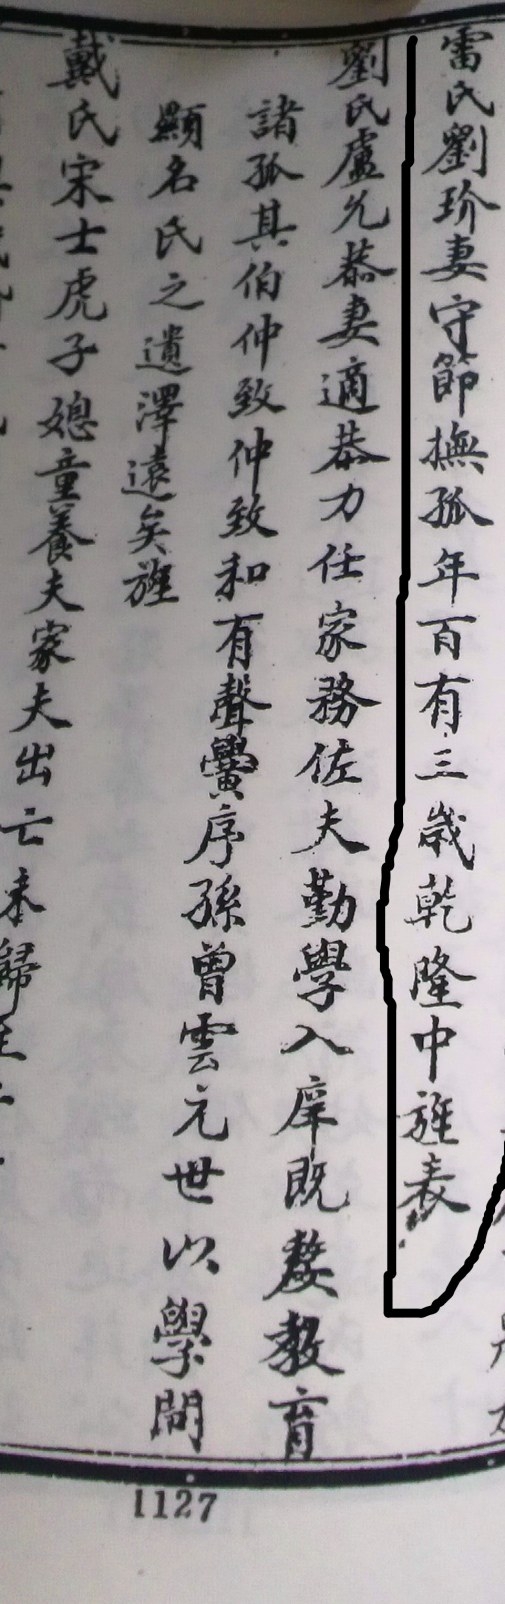 雷氏劉玠妻守節撫孤年百有三歲乾隆中旌表
劉氏盧允恭妻適恭力任家務佐夫勤學入庠既嫠教育
諸孤其伯仲致仲致和有聲黌序孫曾雲元世以學問
顯名氏之遺澤遠矣旌
戴氏宋士虎子媳童養夫家夫出亡未歸
1127